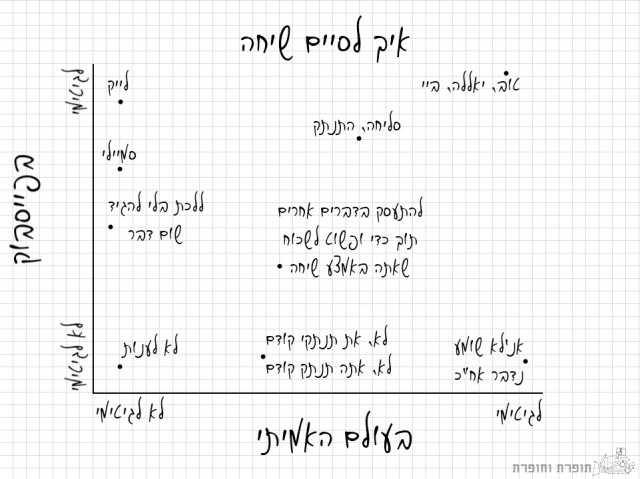 איך לסיים שיחה
לגיטימי
לייק
טוב, יאללה, ביי
סליחה, התנתק
סמיילי
בפייסבוק
ללכת בלי להגיד
שום דבר
להתעסק בדברים אחרים
תוך כדי ופשוט לשכוח
שאתה באמצע שיחה
לא לגיטימי
לא לענות
לא, את תנתקי קודם
לא, אתה תנתק קודם
אנילא שומע
נדבר אח"כ
לא לגיטימי
לגיטימי
בעולם האמיתי
תופרת וחופרת